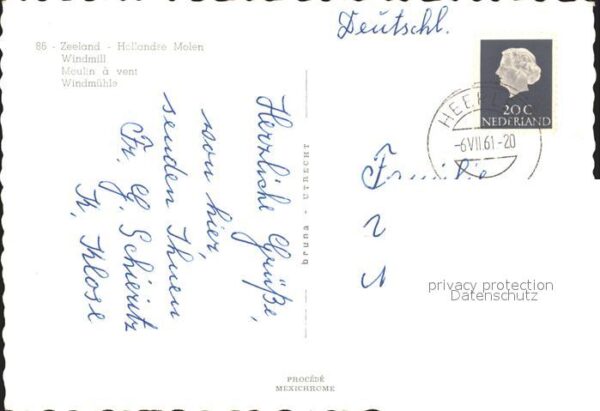 86 - Zeeland - Hollandse Molen
Windmill
Moulin à vent
Windmühle
Deutschl.
20 C
NEDERLAND
HEERL
-6 VII 61-20
Herzliche Grüße,
von hier,
senden Ihnen
Fr. G. Schieritz
K. Klose
bruna - UTRECHT
Familie
privacy protection
Datenschutz
PROCÉDÉ
MEXICHROME